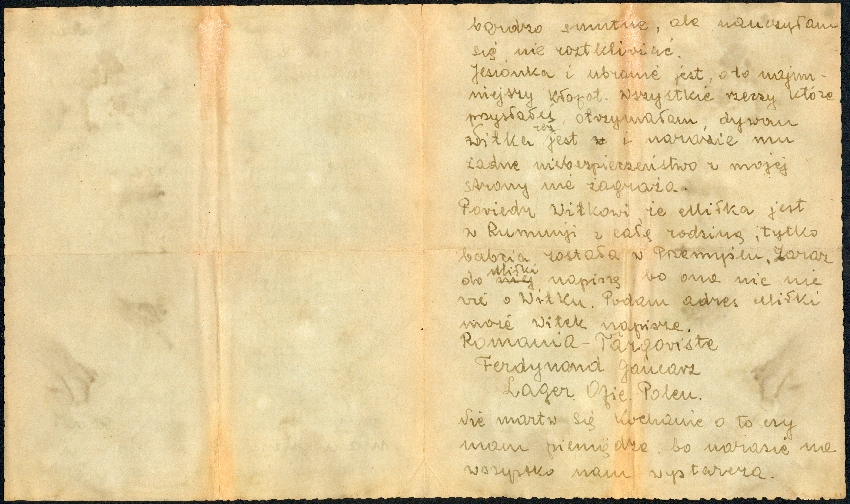 bardzo smutne, ale nauczyłam
się nie roztkliwiać.
Jesionka i ubranie jest, a to najmn-
niejszy kłopot. Wszystkie rzeczy które
przysłałeś, otrzymałam, dywan
Witka też jest i narazie mu
żadne niebezpieczeństwo z mojej
strony nie zagraża.
Powiedz Witkowi, że Milka jest
w Rumunji z całą rodziną, tylko
babcia została w Przemyślu. Zaraz
do Milki napiszę bo ona nic nie
wie o Witku. Podam adres Milki
może Witek napisze.
Romania - Târgoviste
Ferdynand
Lager Ofic. Polen.
Nie martw się Kochanie o to czy
mam pieniądze, bo narazie na
wszystko nam wystarcza.